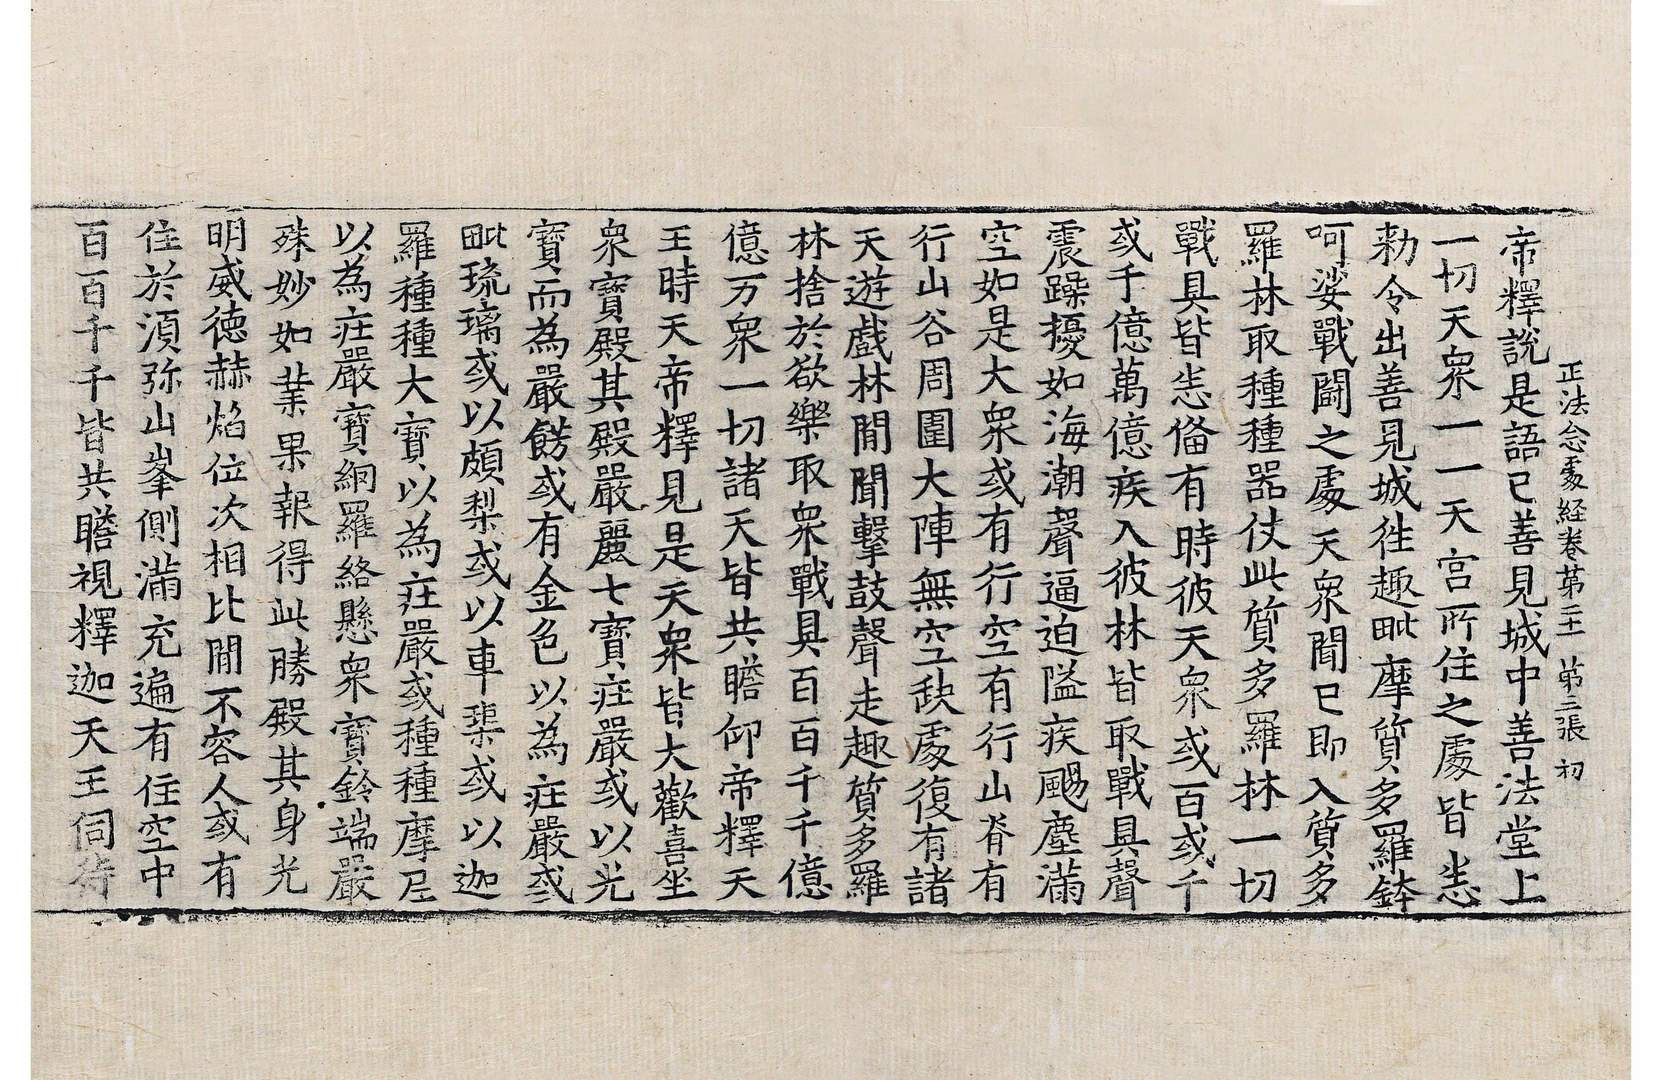 正法念處経卷第二十一 第三張 初
帝釋說是語已善見城中善法堂上
一切天衆一一天宮所住之處皆悉
勑令出善見城徃趣毗摩質多羅鉢
呵娑戰鬪之處天衆聞已即入質多
羅林取種種器仗此質多羅林一切
戰具皆悉俻有時彼天衆或百或千
或千億萬億疾入彼林皆取戰具聲
震躁擾如海潮聲逼迫隘疾颺塵滿
空如是大衆或有行空有行山脊有
行山谷周圍大陣無空缺處復有諸
天遊戲林間聞擊鼓聲走趣質多羅
林捨於欲樂取衆戰具百百千千億
億万衆一切諸天皆共瞻仰帝釋天
王時天帝釋見是天衆皆大歡喜坐
衆寶殿其殿嚴麗七寶莊嚴或以光
寶而為嚴餝或有金色以為莊嚴或
毗琉璃或以頗梨或以車𤦲或以迦
羅種種大寶以為莊嚴或種種摩尼
以為莊嚴寶網羅絡懸衆寶鈴端嚴
殊妙如業果報得此勝殿其身光
明威德赫焰位次相比間不容人或有
住於湏弥山峯側滿充遍有住空中
百百千千皆共瞻視釋迦天王伺待